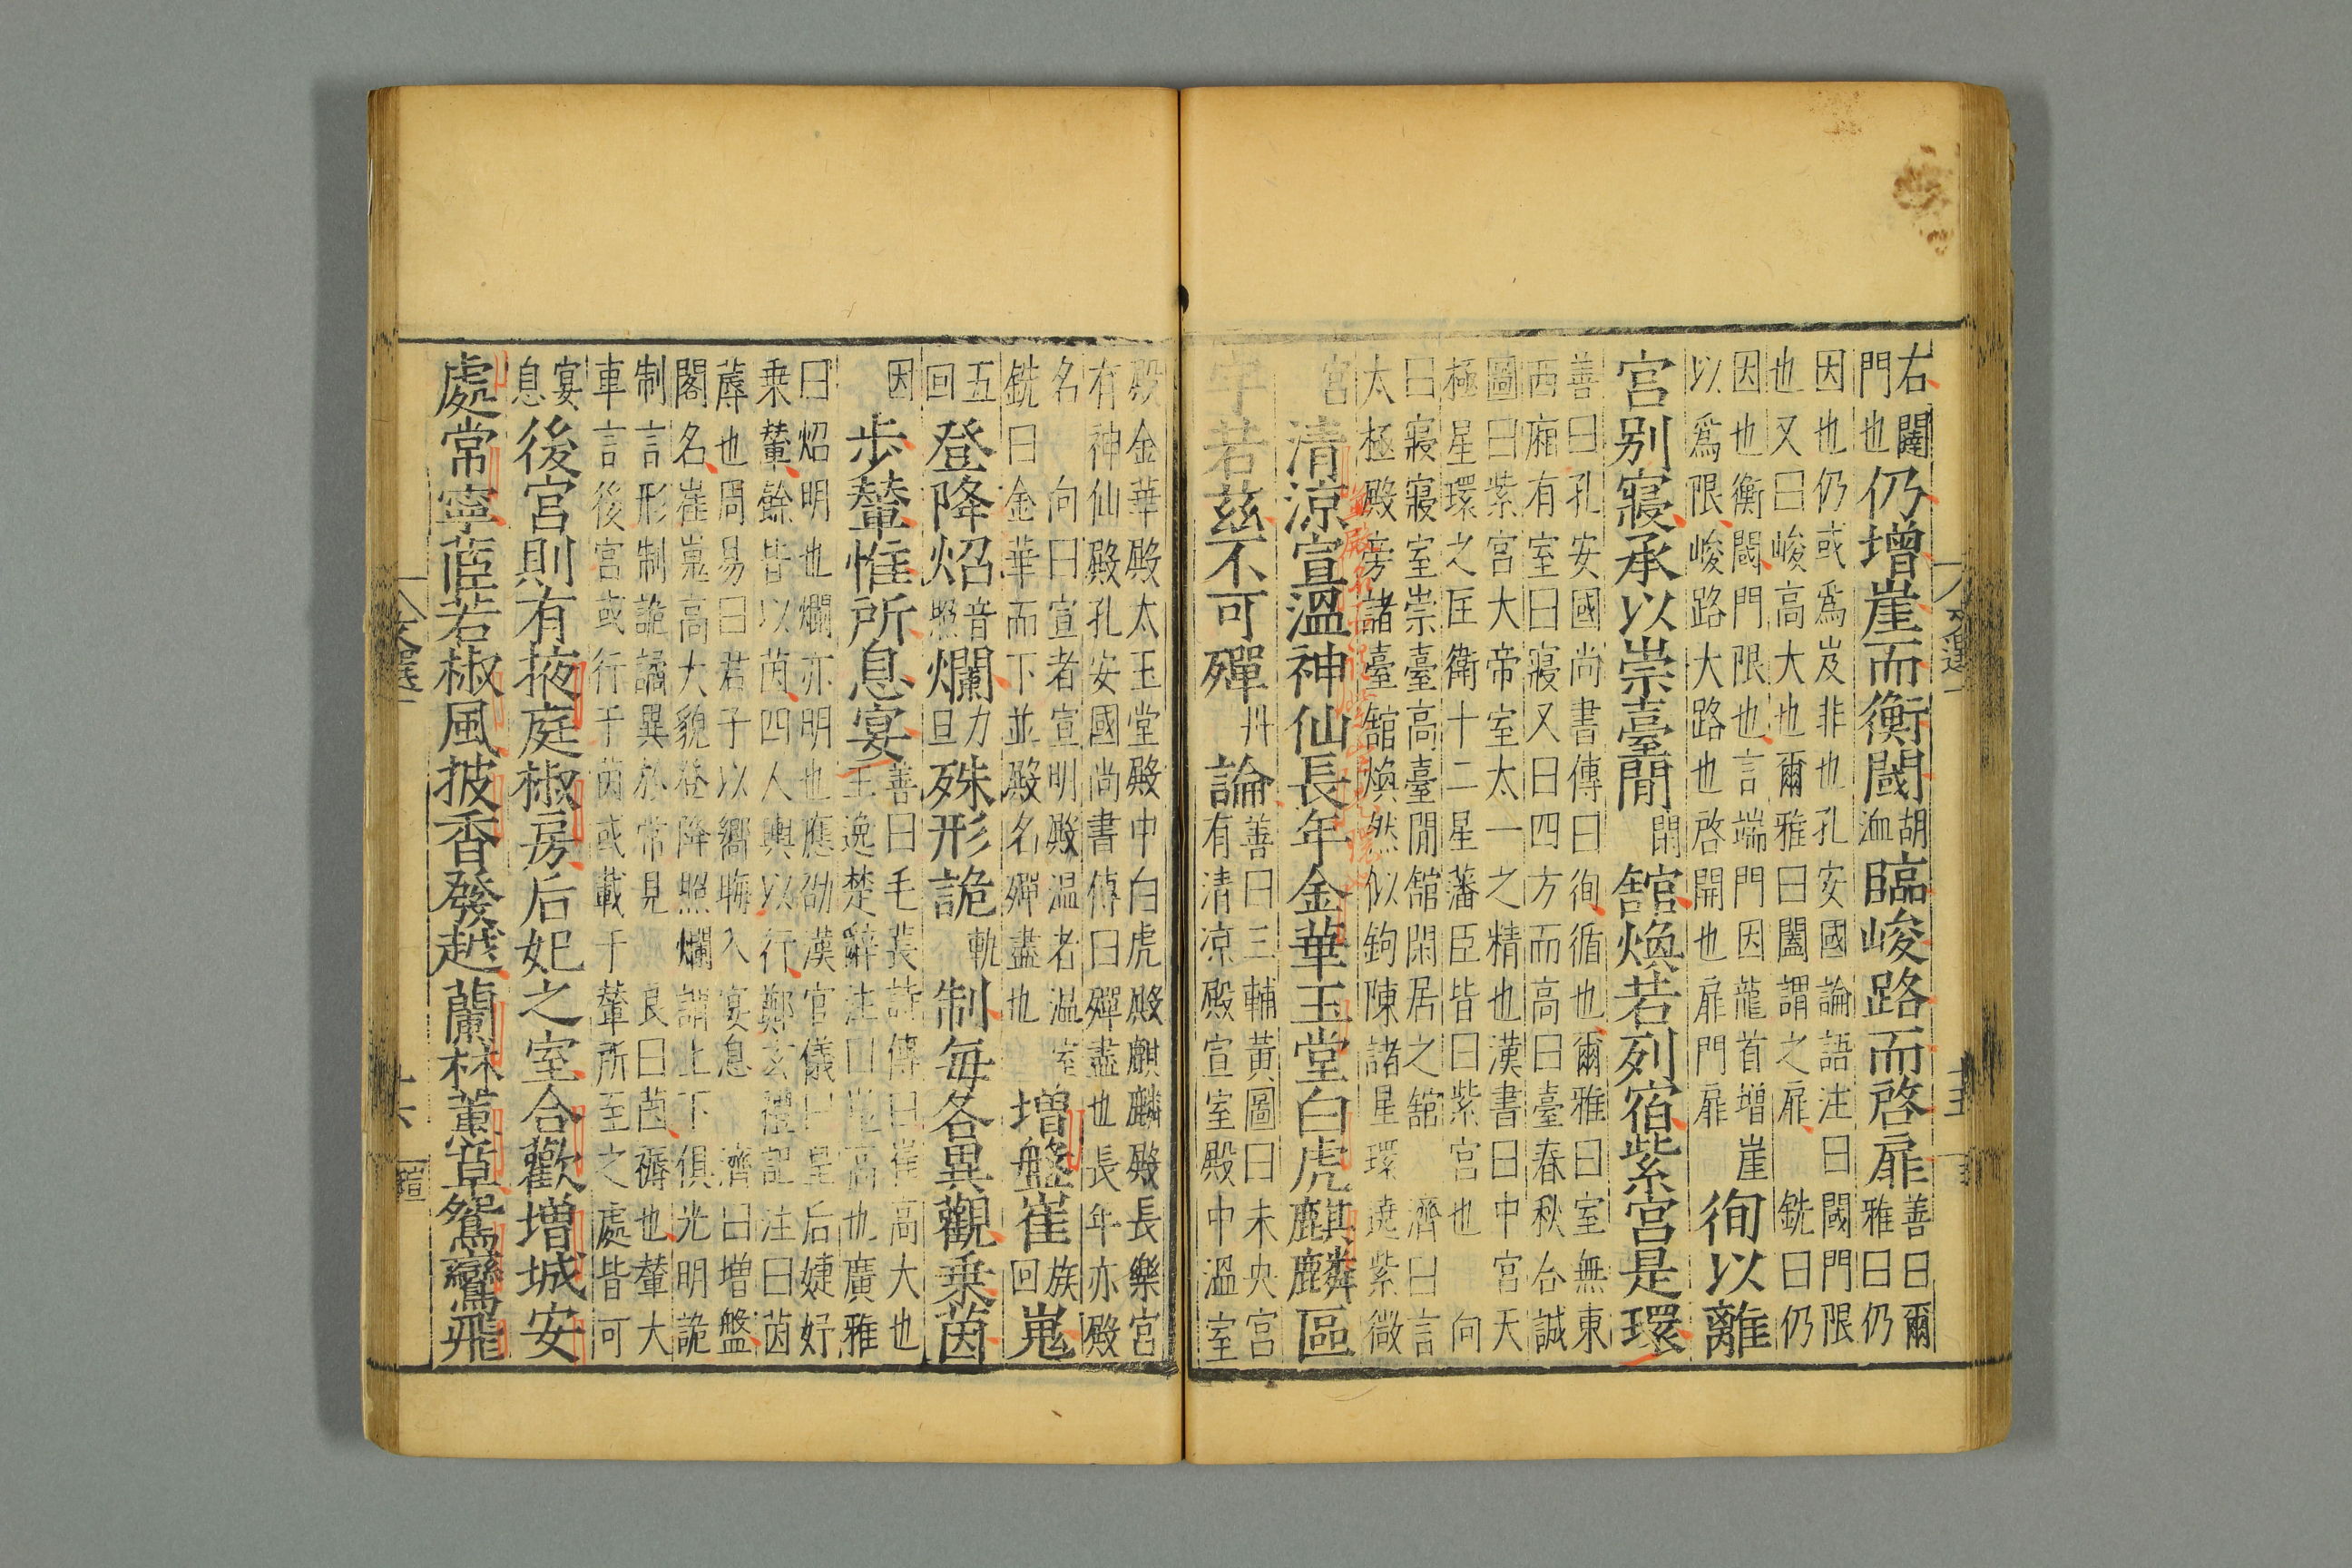 右闥
門也
仍增崖而衡閾
胡
洫
臨峻路而啓扉
善曰爾
雅曰仍
因也仍或爲岌非也孔安國論語注曰閾門限
也又曰峻高大也爾雅曰闔謂之扉 銑曰仍
因也衡閾門限也言端門因龍首增崖
以爲限峻路大路也啓開也扉門扉
徇以離
宮别寢承以崇臺閒
閑
舘煥若列宿紫宮是環
善曰孔安國尚書傳曰徇循也爾雅曰室無東
西廂有室曰寢又曰四方而高曰臺春秋合誠
圖曰紫宮大帝室太一之精也漢書曰中宮天
極星環之匡衛十二星藩臣皆曰紫宮也 向
曰寢寢室崇臺高臺閒舘閑居之舘 濟曰言
太極殿旁諸臺舘煥然似鉤陳諸星環遶紫微
宮
清涼宣溫神仙長年金華玉堂白虎麒麟區
宇若茲不可殫
丹
論
善曰三輔黃圖曰未央宮
有清涼殿宣室殿中溫室
文選一
十五
殿金華殿太玉堂殿中白虎殿麒麟殿長樂宮
有神仙殿孔安國尚書傳曰殫盡也長年亦殿
名 向曰宣者宣明殿温者温室
銑曰金華而下並殿名殫盡也
增盤崔
族
回
嵬
五
回
登降炤
音
照
爛
力
旦
殊形詭
軌
制每各異觀乗茵
因
步輦惟所息宴
善曰毛萇詩傳曰崔高大也
王逸楚辭注曰嵬高也廣雅
曰炤明也爛亦明也應劭漢官儀曰皇后婕妤
乗輦餘皆以茵四人輿以行鄭玄禮記注曰茵
蓐也周易曰君子以嚮晦入宴息 濟曰增盤
閣名崔嵬高大貌登降照爛謂上下俱光明詭
制言形制詭譎異於常見 良曰茵褥也輦大
車言後宮或行于茵或載于輦所至之處皆可
宴
息
後宮則有掖庭椒房后妃之室合歡增城安
處常寧茝若椒風披香發越蘭林蕙草鴛鸞飛
文選一
十六